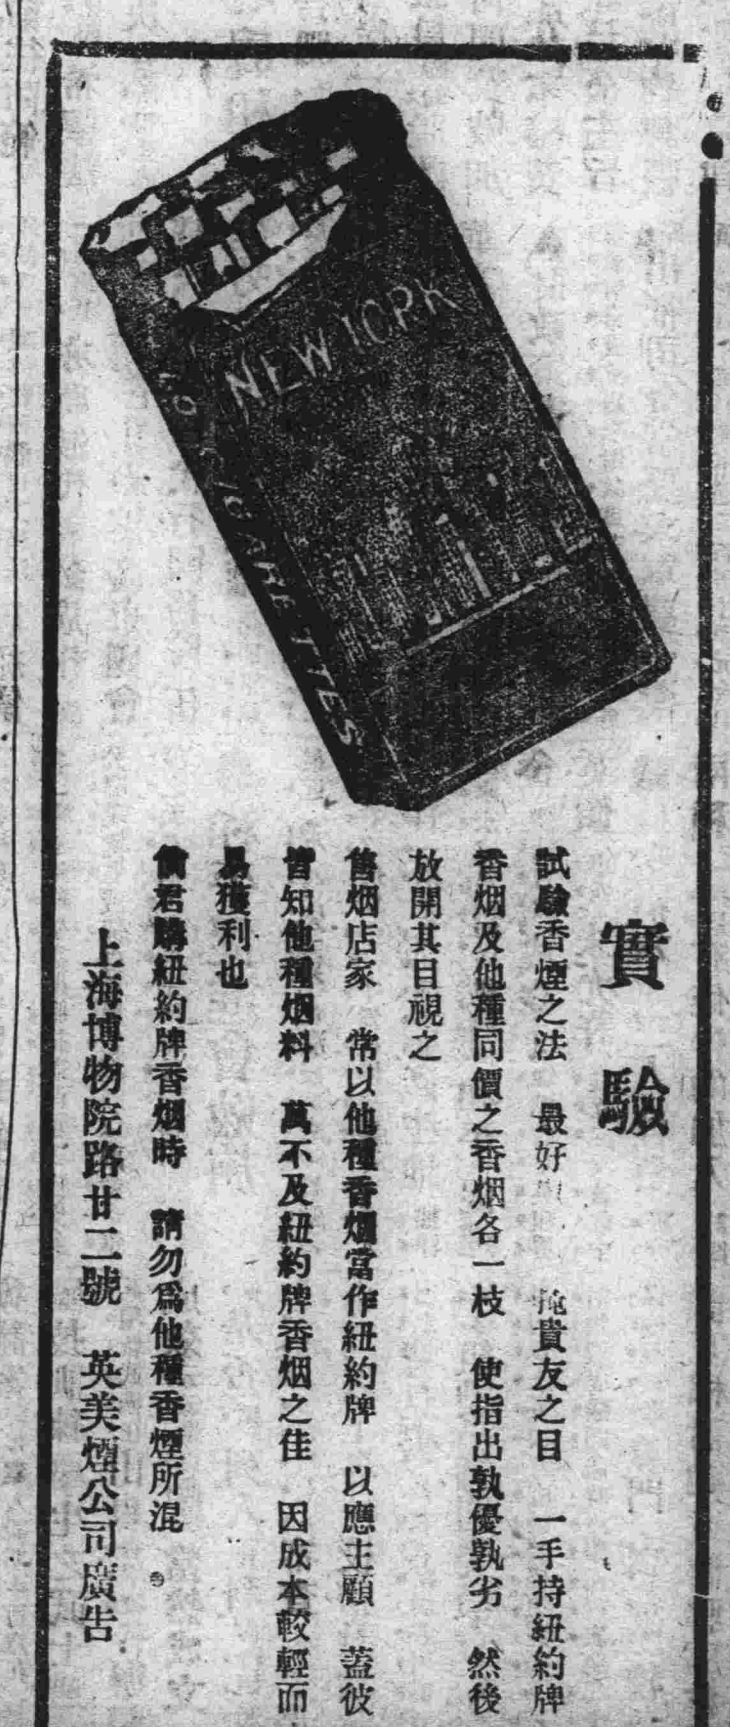 NEW YORK
CIGARETTES
實驗
試驗香煙之法 最好 掩貴友之目 一手持紐約牌
香烟及他種同價之香烟各一枝 使指出孰優孰劣 然後
放開其目視之
售烟店家 常以他種香烟當作紐約牌 以應主顧 蓋彼
皆知他種烟料 萬不及紐約牌香烟之佳 因成本較輕而
易獲利也
倘君購紐約牌香烟時 請勿爲他種香煙所混
上海博物院路廿二號 英美煙公司廣告